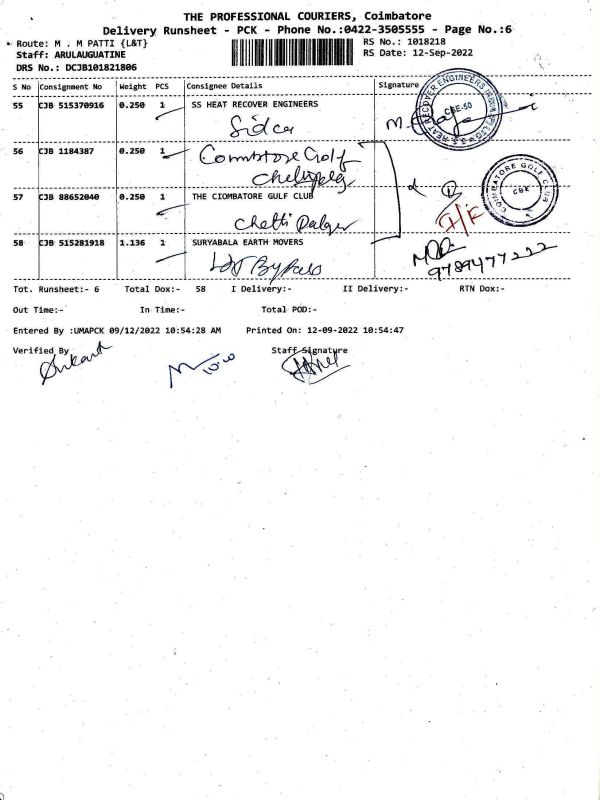 THE PROFESSIONAL COURIERS, Coimbatore
Delivery Runsheet - PCK - Phone No.:0422-3505555 - Page No.:6
Route: M . M PATTI {L&T}
RS No.: 1018218
Staff: ARULAUGUATINE
RS Date: 12-Sep-2022
DRS No.: DCJB101821806
S No Consignment No Weight PCS Consignee Details Signature
55 CJB 515370916 0.250 1 SS HEAT RECOVER ENGINEERS
Sidco
56 CJB 1184387 0.250 1 Coimbatore Golf
57 CJB 88652040 0.250 1 THE CIOMBATORE GULF CLUB
Chetti Palayer
COIMBATORE GOLF CLUB
CBE
58 CJB 515281918 1.136 1 SURYABALA EARTH MOVERS
L&T Bypass
9789477222
Tot. Runsheet:- 6 Total Dox:- 58 I Delivery:- II Delivery:- RTN Dox:-
Out Time:- In Time:- Total POD:-
Entered By :UMAPCK 09/12/2022 10:54:28 AM Printed On: 12-09-2022 10:54:47
Verified By Staff Signature